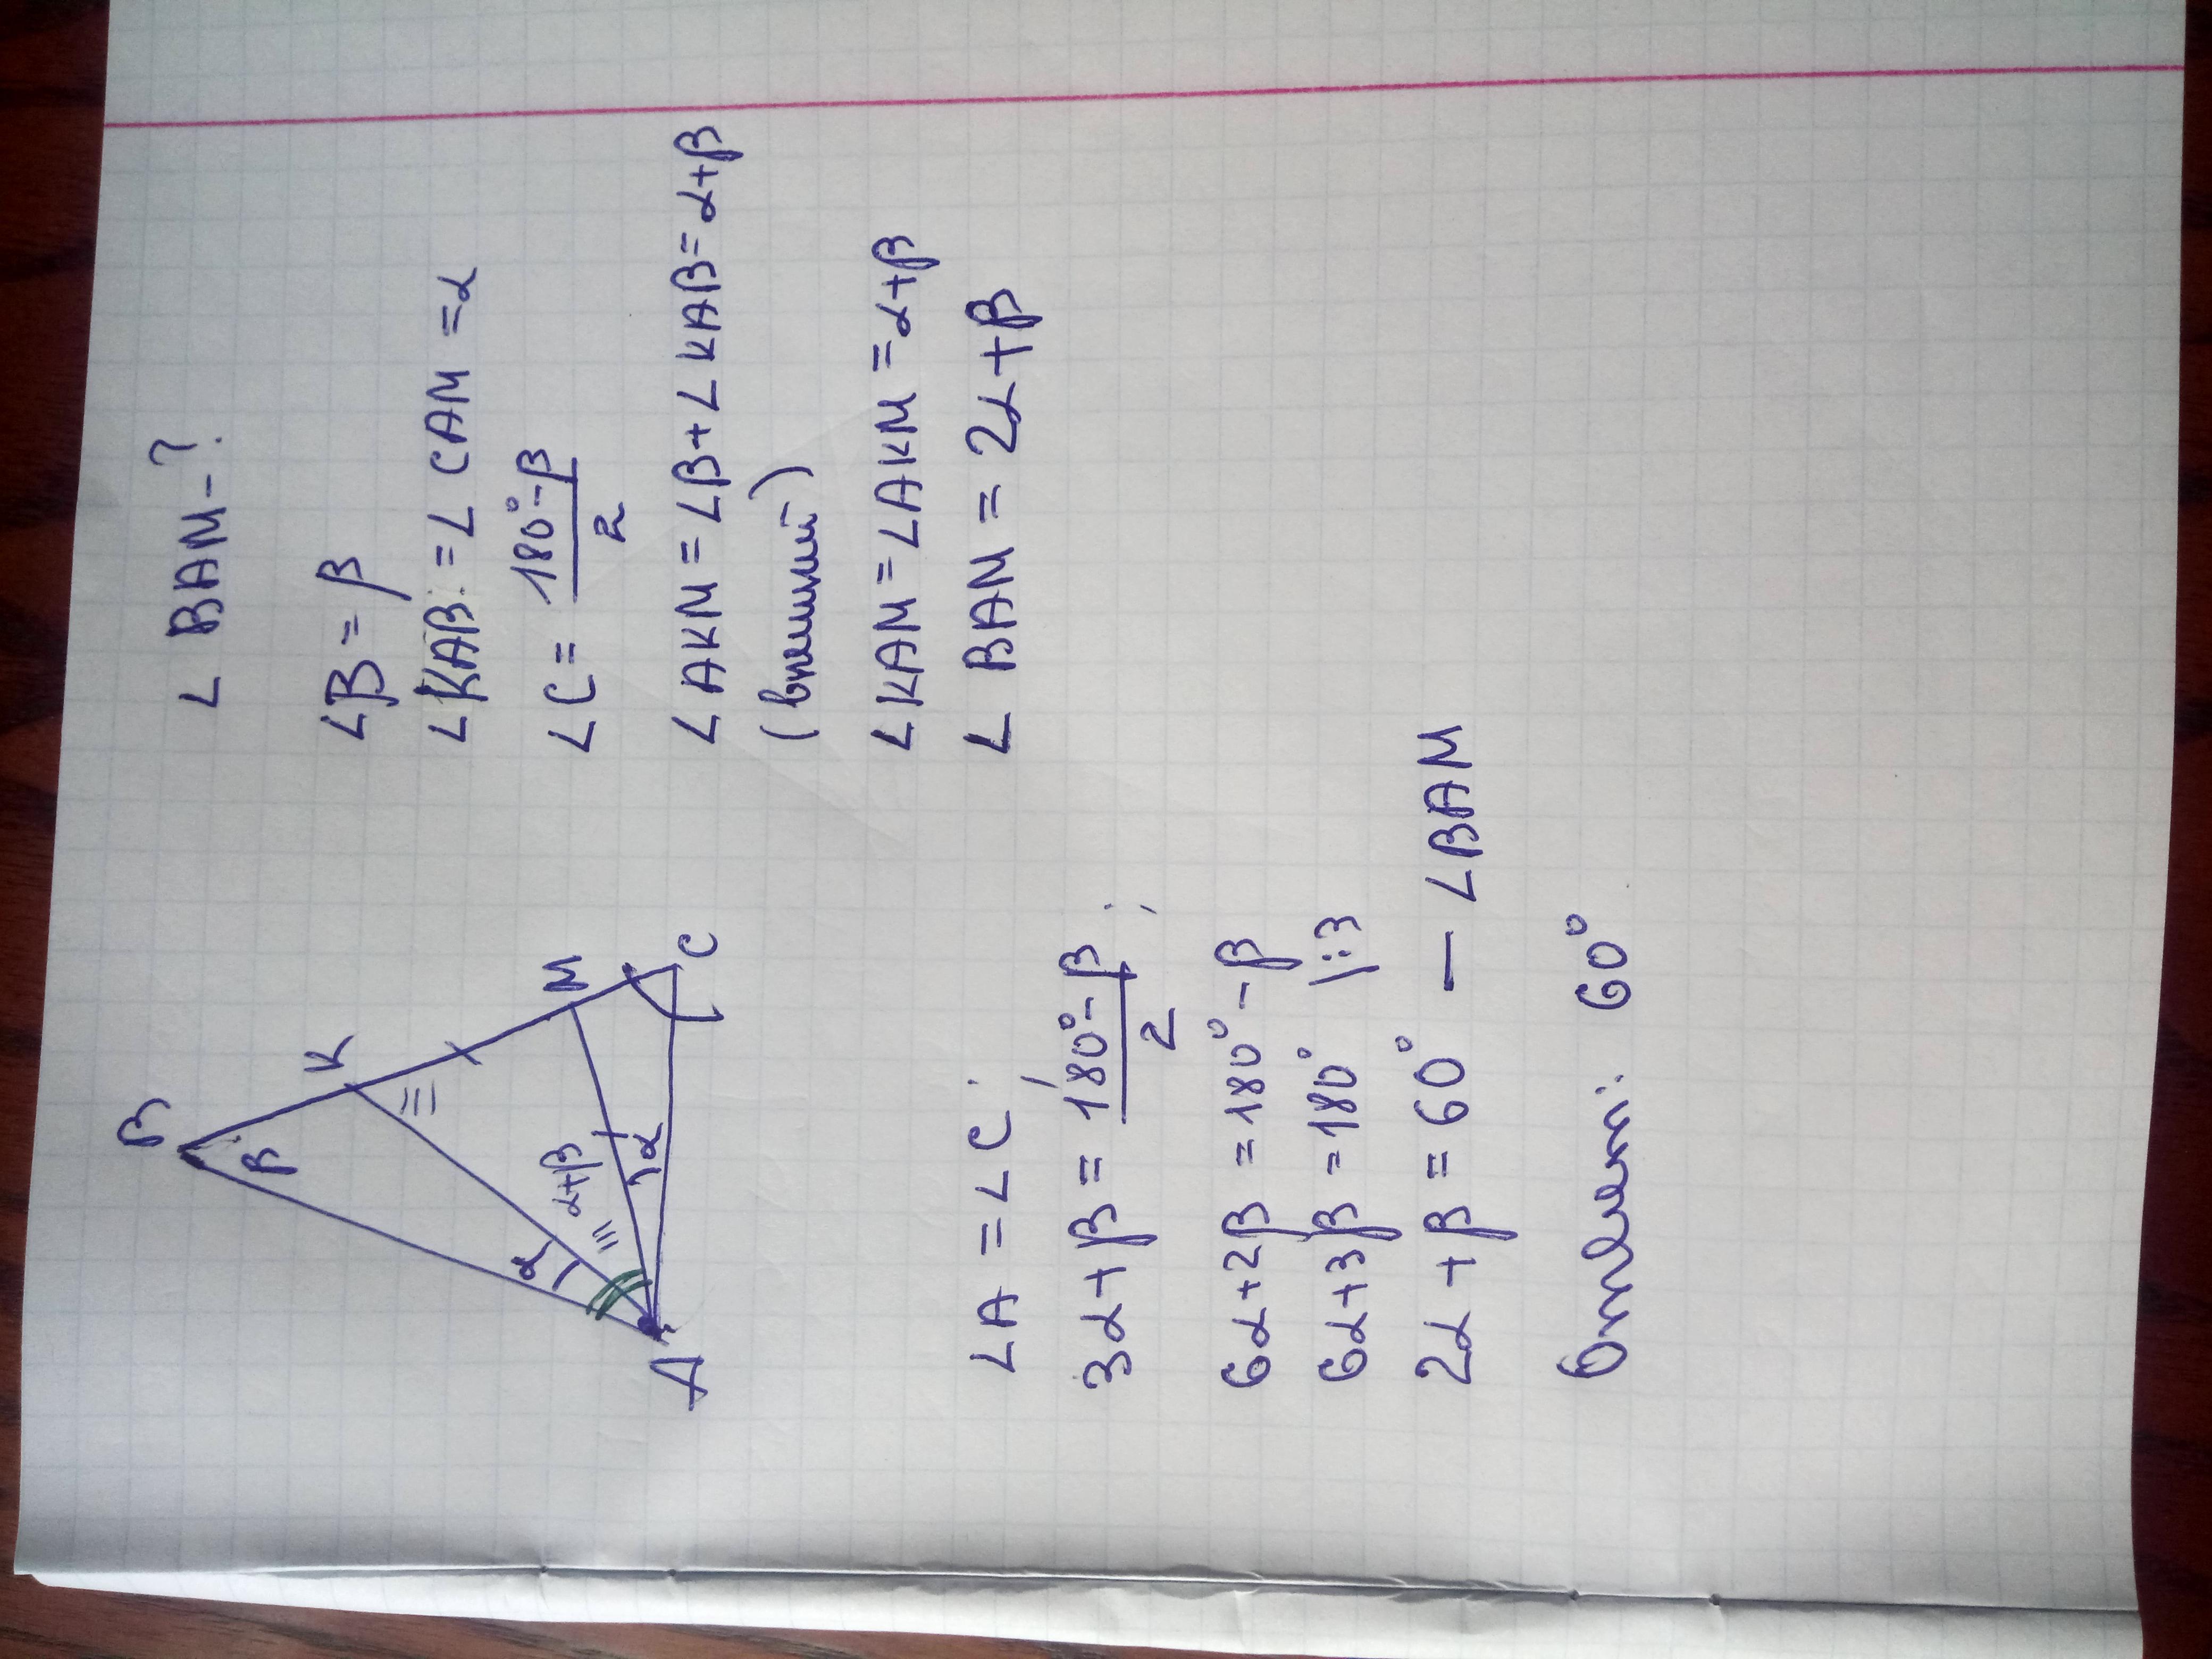 ∠ BAM - ?
B
β
K
M
C
A
α
α+β
α
∠B = β
∠KAB = ∠ CAM = α
∠C = (180° - β)/2
∠ AKM = ∠B + ∠ KAB = α+β
(внешний)
∠KAM = ∠AKM = α+β
∠ BAM = 2α+β
∠A = ∠C:
3α+β = (180° - β)/2 ;
6α+2β = 180° - β
6α+3β = 180° |:3
2α+β = 60° — ∠BAM
Ответ: 60°